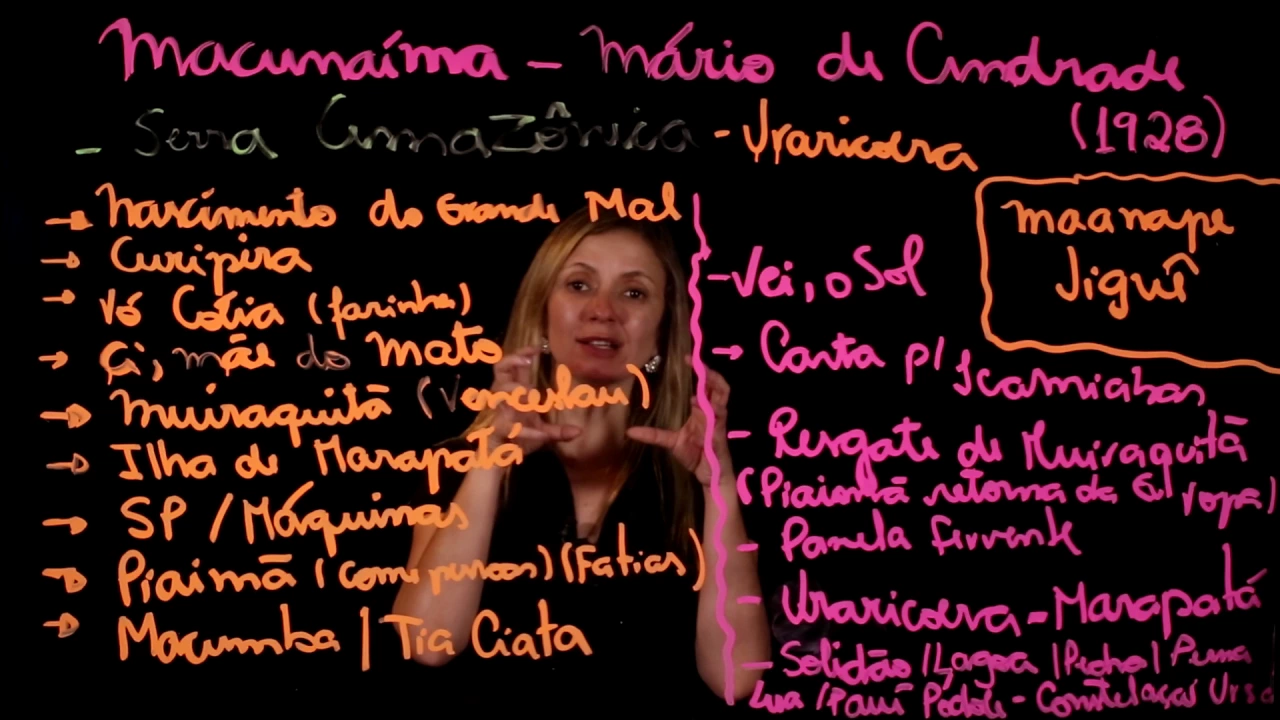 Macunaíma - Mário de Andrade
(1928)
- Serra Amazônica - Uraricoera
→ Nascimento do Grande Mal
→ Curipira
→ Vó Cotia (farinha)
→ Ci, mãe do Mato
→ Muiraquitã (Venceslau)
→ Ilha de Marapatá
→ SP / Máquinas
→ Piaimã (come pessoas) (Fatias)
→ Macumba / Tia Ciata
maanape
Jiguê
- Vei, o Sol
→ Carta p/ Icamiabas
- Resgate de Muiraquitã
(Piaimã retorna da Europa)
- Panela fervente
- Uraricoera - Marapatá
- Solidão / Lagoa / Pedro / Perna
Lua / Pauí Pódole - Constelação Ursa